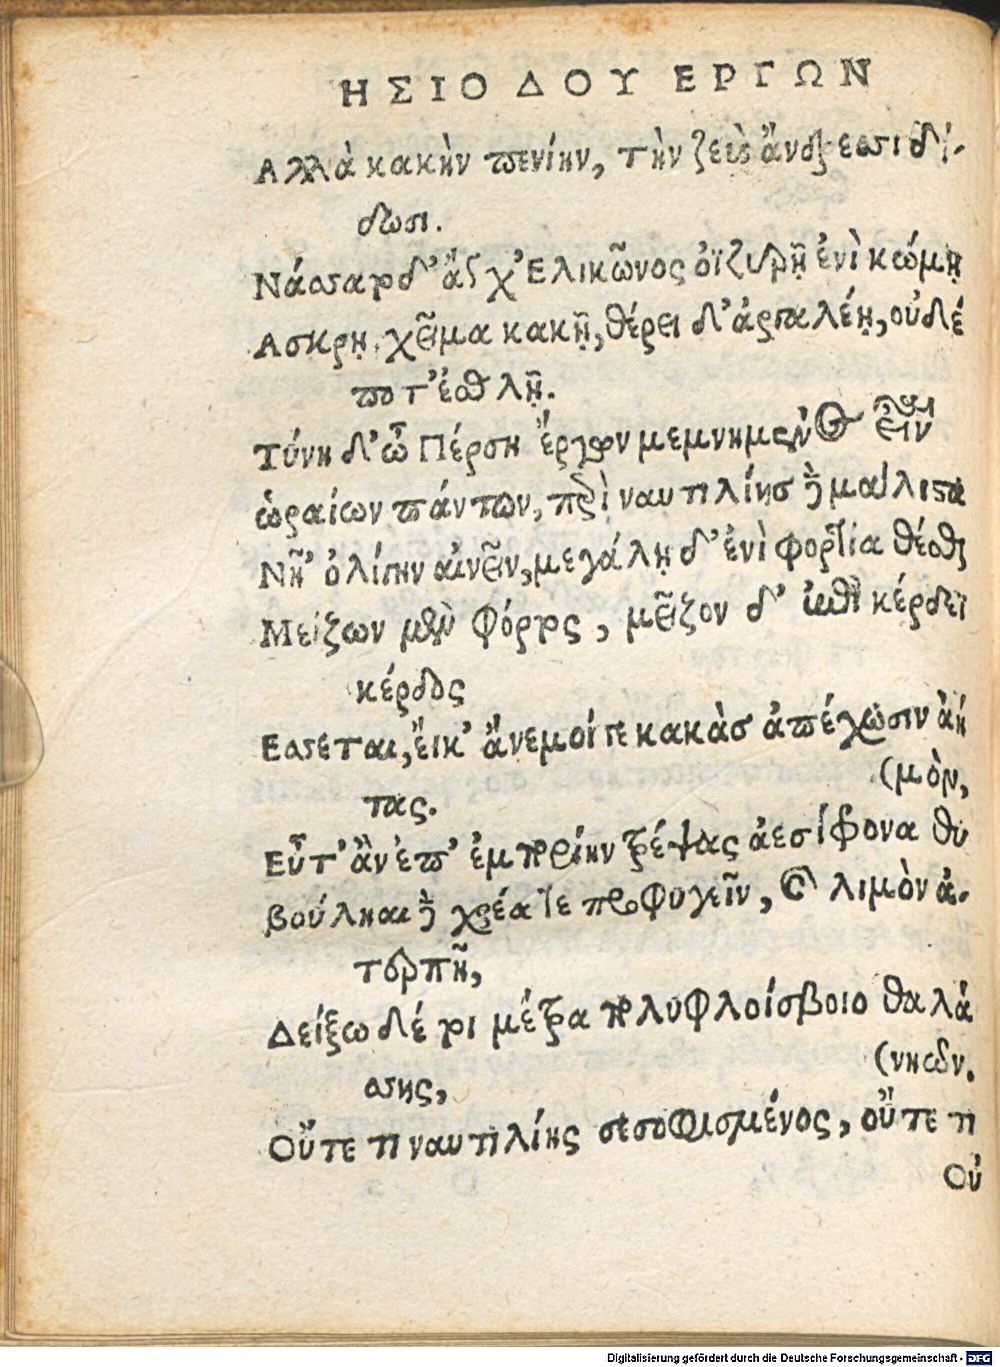 ΗΣΙΟΔΟΥ ΕΡΓΩΝ
Αλλὰ κακὴν πενίην, τὴν ζεὺς ἄνδρεσσι δί-
δωσι.
Νάσσατο δ' ἄγχ' Ελικῶνος ὀϊζυρῇ ἐνὶ κώμῃ
Ασκρῃ, χεῖμα κακῇ, θέρει δ' ἀργαλέῃ, οὐδέ
ποτ' ἐσθλῇ.
Τύνη δ' ὦ Πέρση ἔργων μεμνημένος εἶναι
ὡραίων πάντων, περὶ ναυτιλίης καὶ μάλιστα
Νῆ' ὀλίγην αἰνεῖν, μεγάλῃ δ' ἐνὶ φορτία θέσθαι
Μείζων μὲν φόρτος, μεῖζον δ' ἐπὶ κέρδεϊ
κέρδος
Εσσεται, εἴκ' ἄνεμοί γε κακὰσ ἀπέχωσιν ἀή
(μὸν,
τας.
Εὖτ' ἂν ἐπ' ἐμπορίην τρέψας ἀεσίφρονα θυ
βούληαι καὶ χρέα τε προφυγεῖν, καὶ λιμὸν ἀ-
τερπῆ,
Δείξω δέ τοι μέτρα πολυφλοίσβοιο θαλά
(νηῶν.
σσης,
Οὔτε τι ναυτιλίης σεσοφισμένος, οὔτε τι
Οὐ
Digitalisierung gefördert durch die Deutsche Forschungsgemeinschaft - DFG